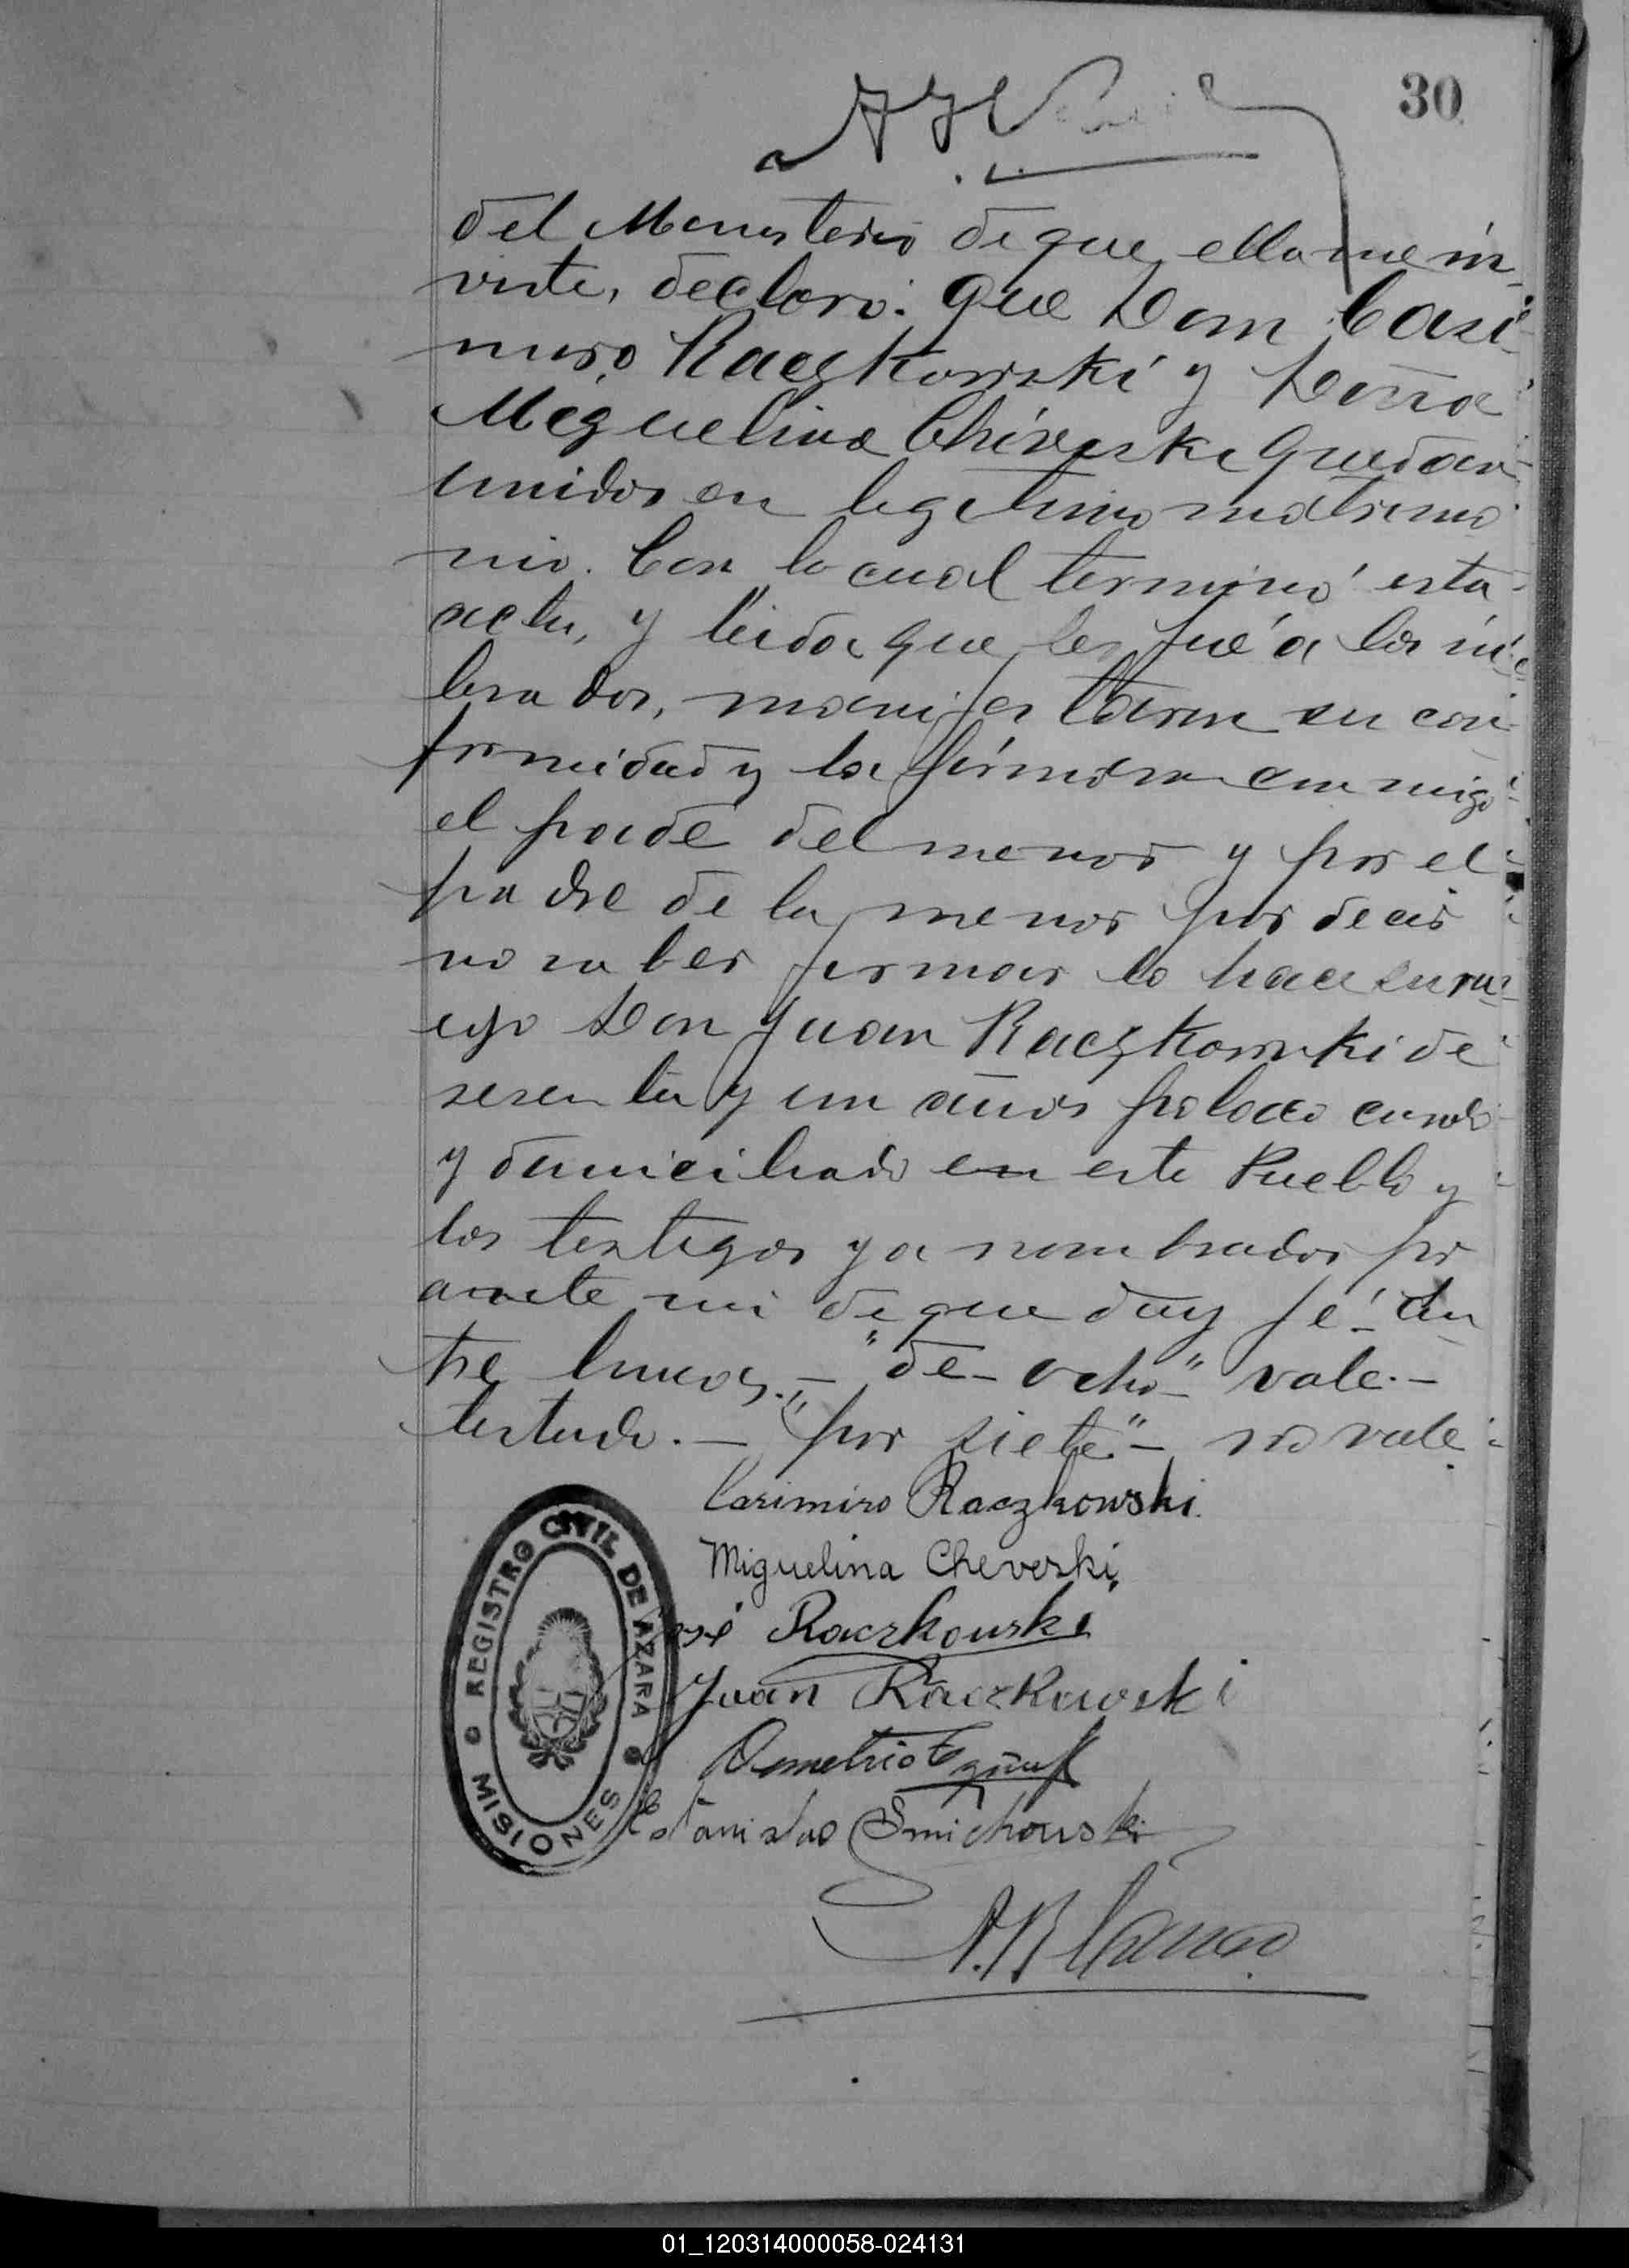 30
del Menesterio de que ella me in-
viste, declaro: Que Don Casi-
miro Raczkowski y Doña
Meguelina Chiveske quedan
unidos en legitimo matrimo
nio. Con lo cual terminó esta
acta, y leida que les fué a los in
brados, manifestaron su con-
formidad y la firmaron conmigo
el padre del menor y por el
padre de la menor por decir
no saber firmar lo hace su ru-
ego Don Juan Raczkowski de
sesenta y un años polaco casado
y domiciliado en este Pueblo y
los testigos ya nombrados por
ante mi de que doy fé. En
tre lineas.- "de- ocho-" vale.-
testado.- "por siete"- no vale.
Casimiro Raczkowski.
Miguelina Cheverski.
José Raczkowski
Juan Raczkowski
Demetrio
Estanislao Smichowski
A. Blanco
REGISTRO CIVIL DE AZARA
MISIONES
01_120314000058-024131